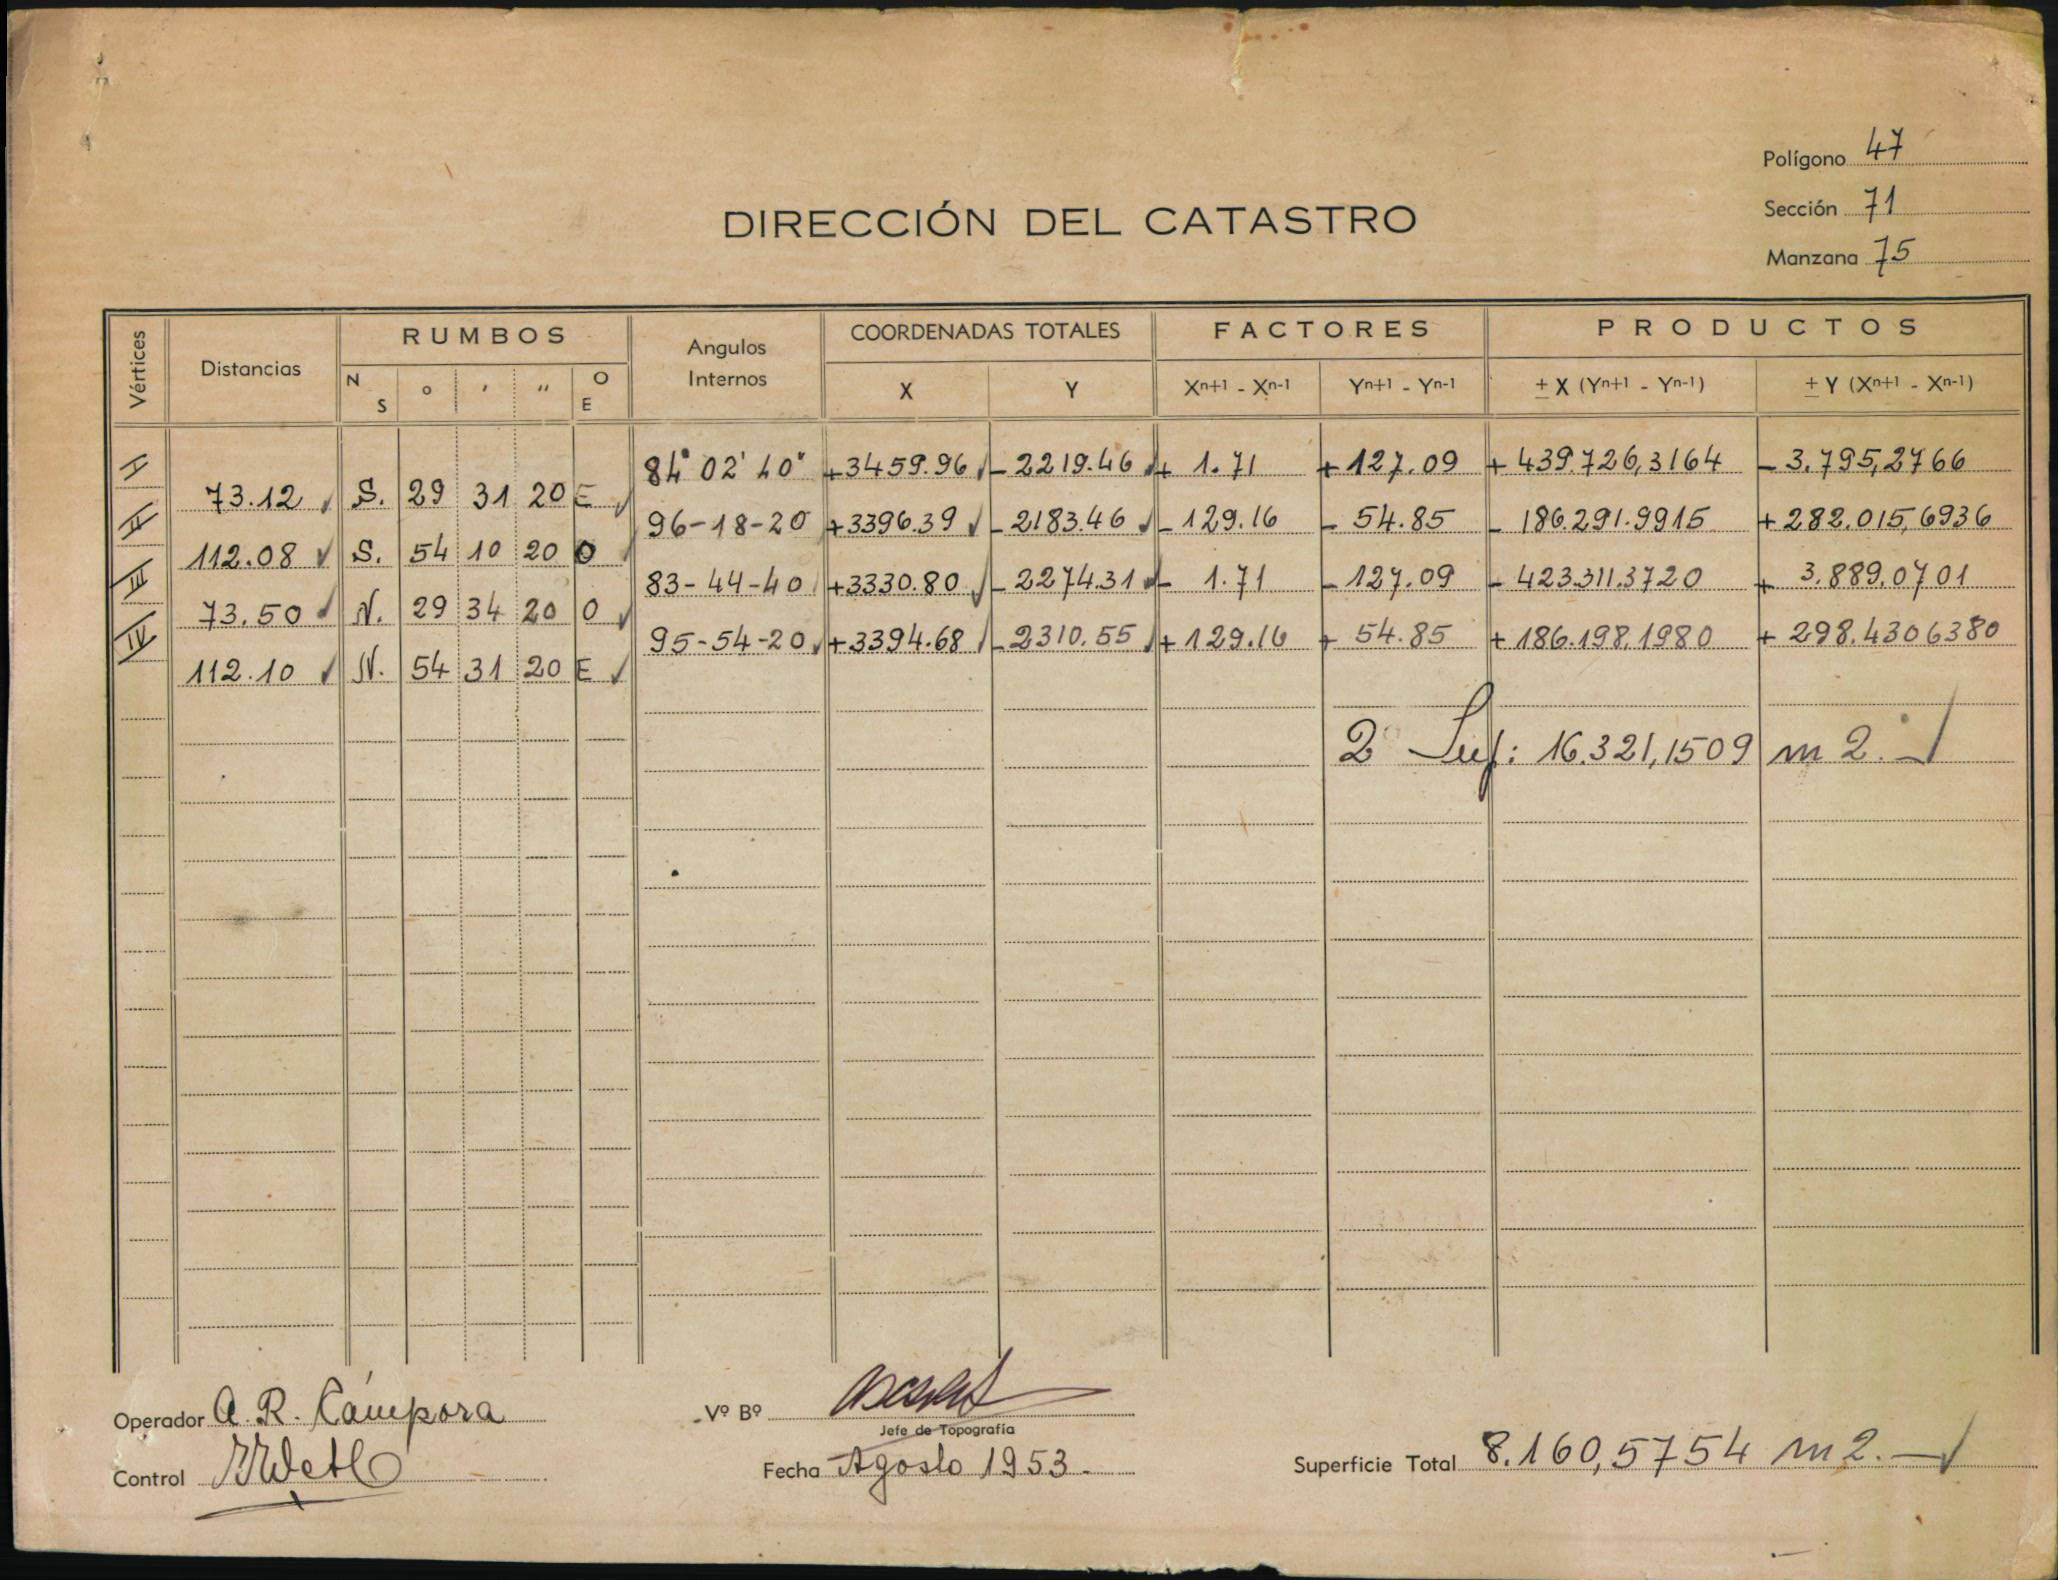 Polígono 47
Sección 71
Manzana 75
DIRECCIÓN DEL CATASTRO
Vértices Distancias RUMBOS N S o ' " O E Angulos Internos COORDENADAS TOTALES X Y FACTORES Xn+1 - Xn-1 Yn+1 - Yn-1 PRODUCTOS ± X (Yn+1 - Yn-1) ± Y (Xn+1 - Xn-1)
I 84° 02' 40" +3459.96 - 2219.46 + 1.71 + 127.09 + 439.726,3164 - 3.795,2766
73.12 S. 29 31 20 E
II 96-18-20 +3396.39 - 2183.46 - 129.16 - 54.85 - 186.291.9915 + 282.015,6936
112.08 S. 54 10 20 O
III 83-44-40 +3330.80 - 2274.31 - 1.71 - 127.09 - 423.311.3720 + 3.889,0701
73.50 N. 29 34 20 O
IV 95-54-20 +3394.68 - 2310.55 + 129.16 + 54.85 + 186.198,1980 + 298.430 6380
112.10 N. 54 31 20 E
2 Sup: 16.321,1509 m 2.
Operador A. R. Cámpora
Vº Bº
Jefe de Topografía
Control
Fecha Agosto 1953.
Superficie Total 8.160,5754 m 2.